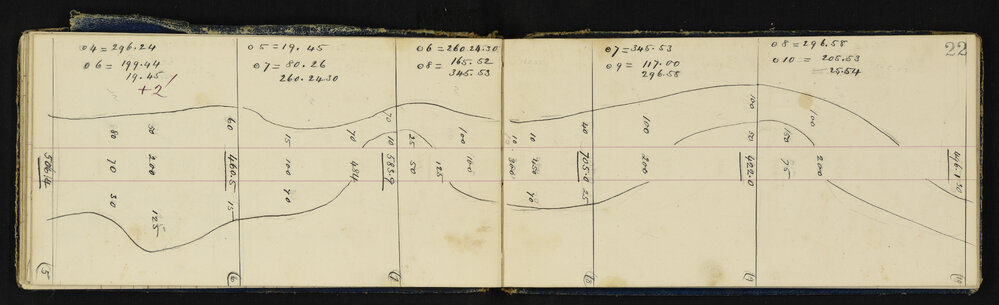 04 = 296.24
06 = 199.44
19.45
+ 2'
05 = 19.45
07 = 80.26
260.24.30
06 = 260.24.30
08 = 165.52
345.53
07 = 345.53
09 = 117.00
296.58
08 = 296.58
010 = 205.53
= 25.54
22
506.4
80
70
30
50
200
125
60
460.5
15
15
100
70
70
484
70
10
583.9
25
50
125
100
100
10
300
10
450
70
40
705.0
25
100
200
100
50
422.0
150
75
100
200
496.1
50
5
6
7
8
9
10